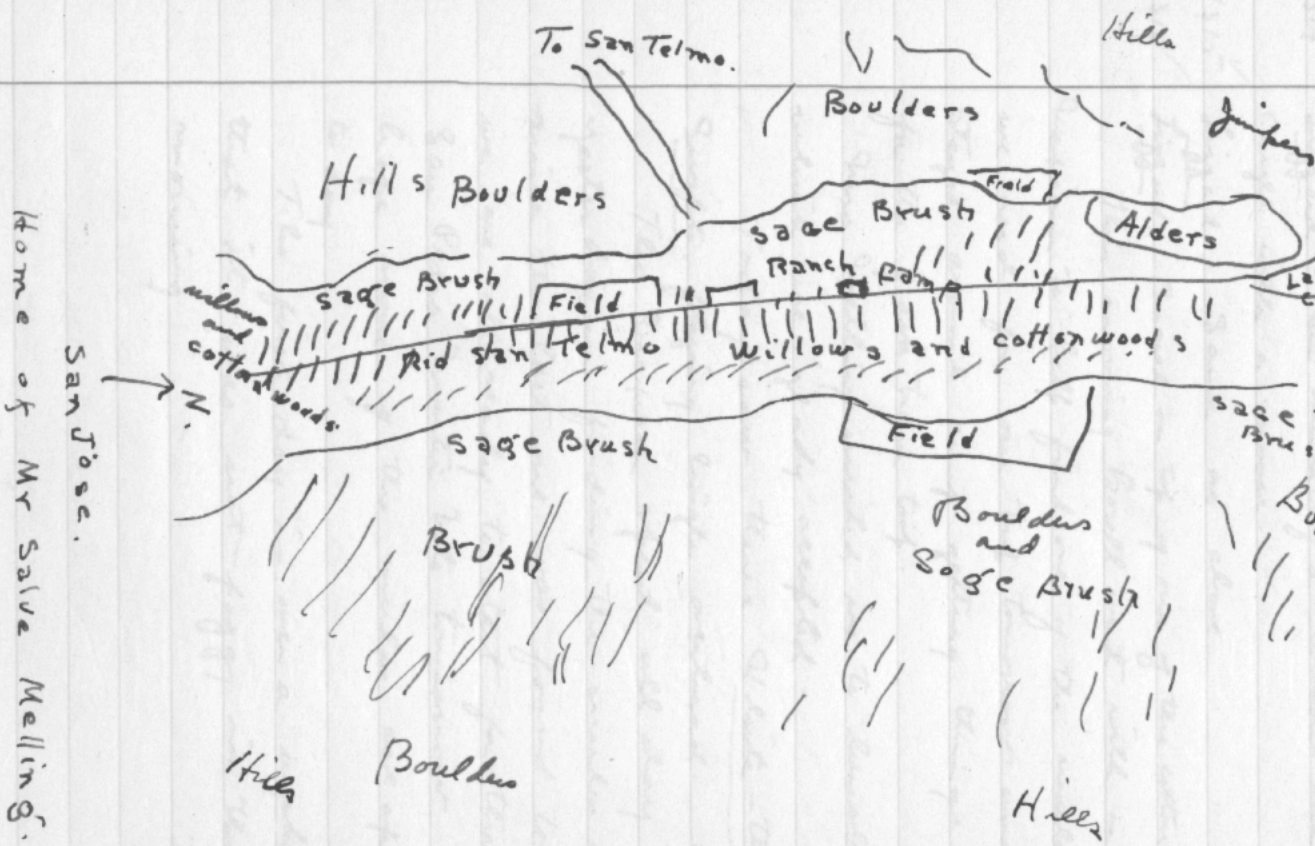 To San Telmo.
Hills
Boulders
Junipers
Hills Boulders
Field
Sage Brush
Alders
Sage Brush
Ranch
Field
willows
and
cottonwoods.
Rio San Telmo
Willows and cottonwoods
Sage Brush
Field
Sage
Brus
Brush
Boulders
and
Sage Brush
Hills
Boulders
Hills
N.
San Jose.
Home of Mr Salve Melling.